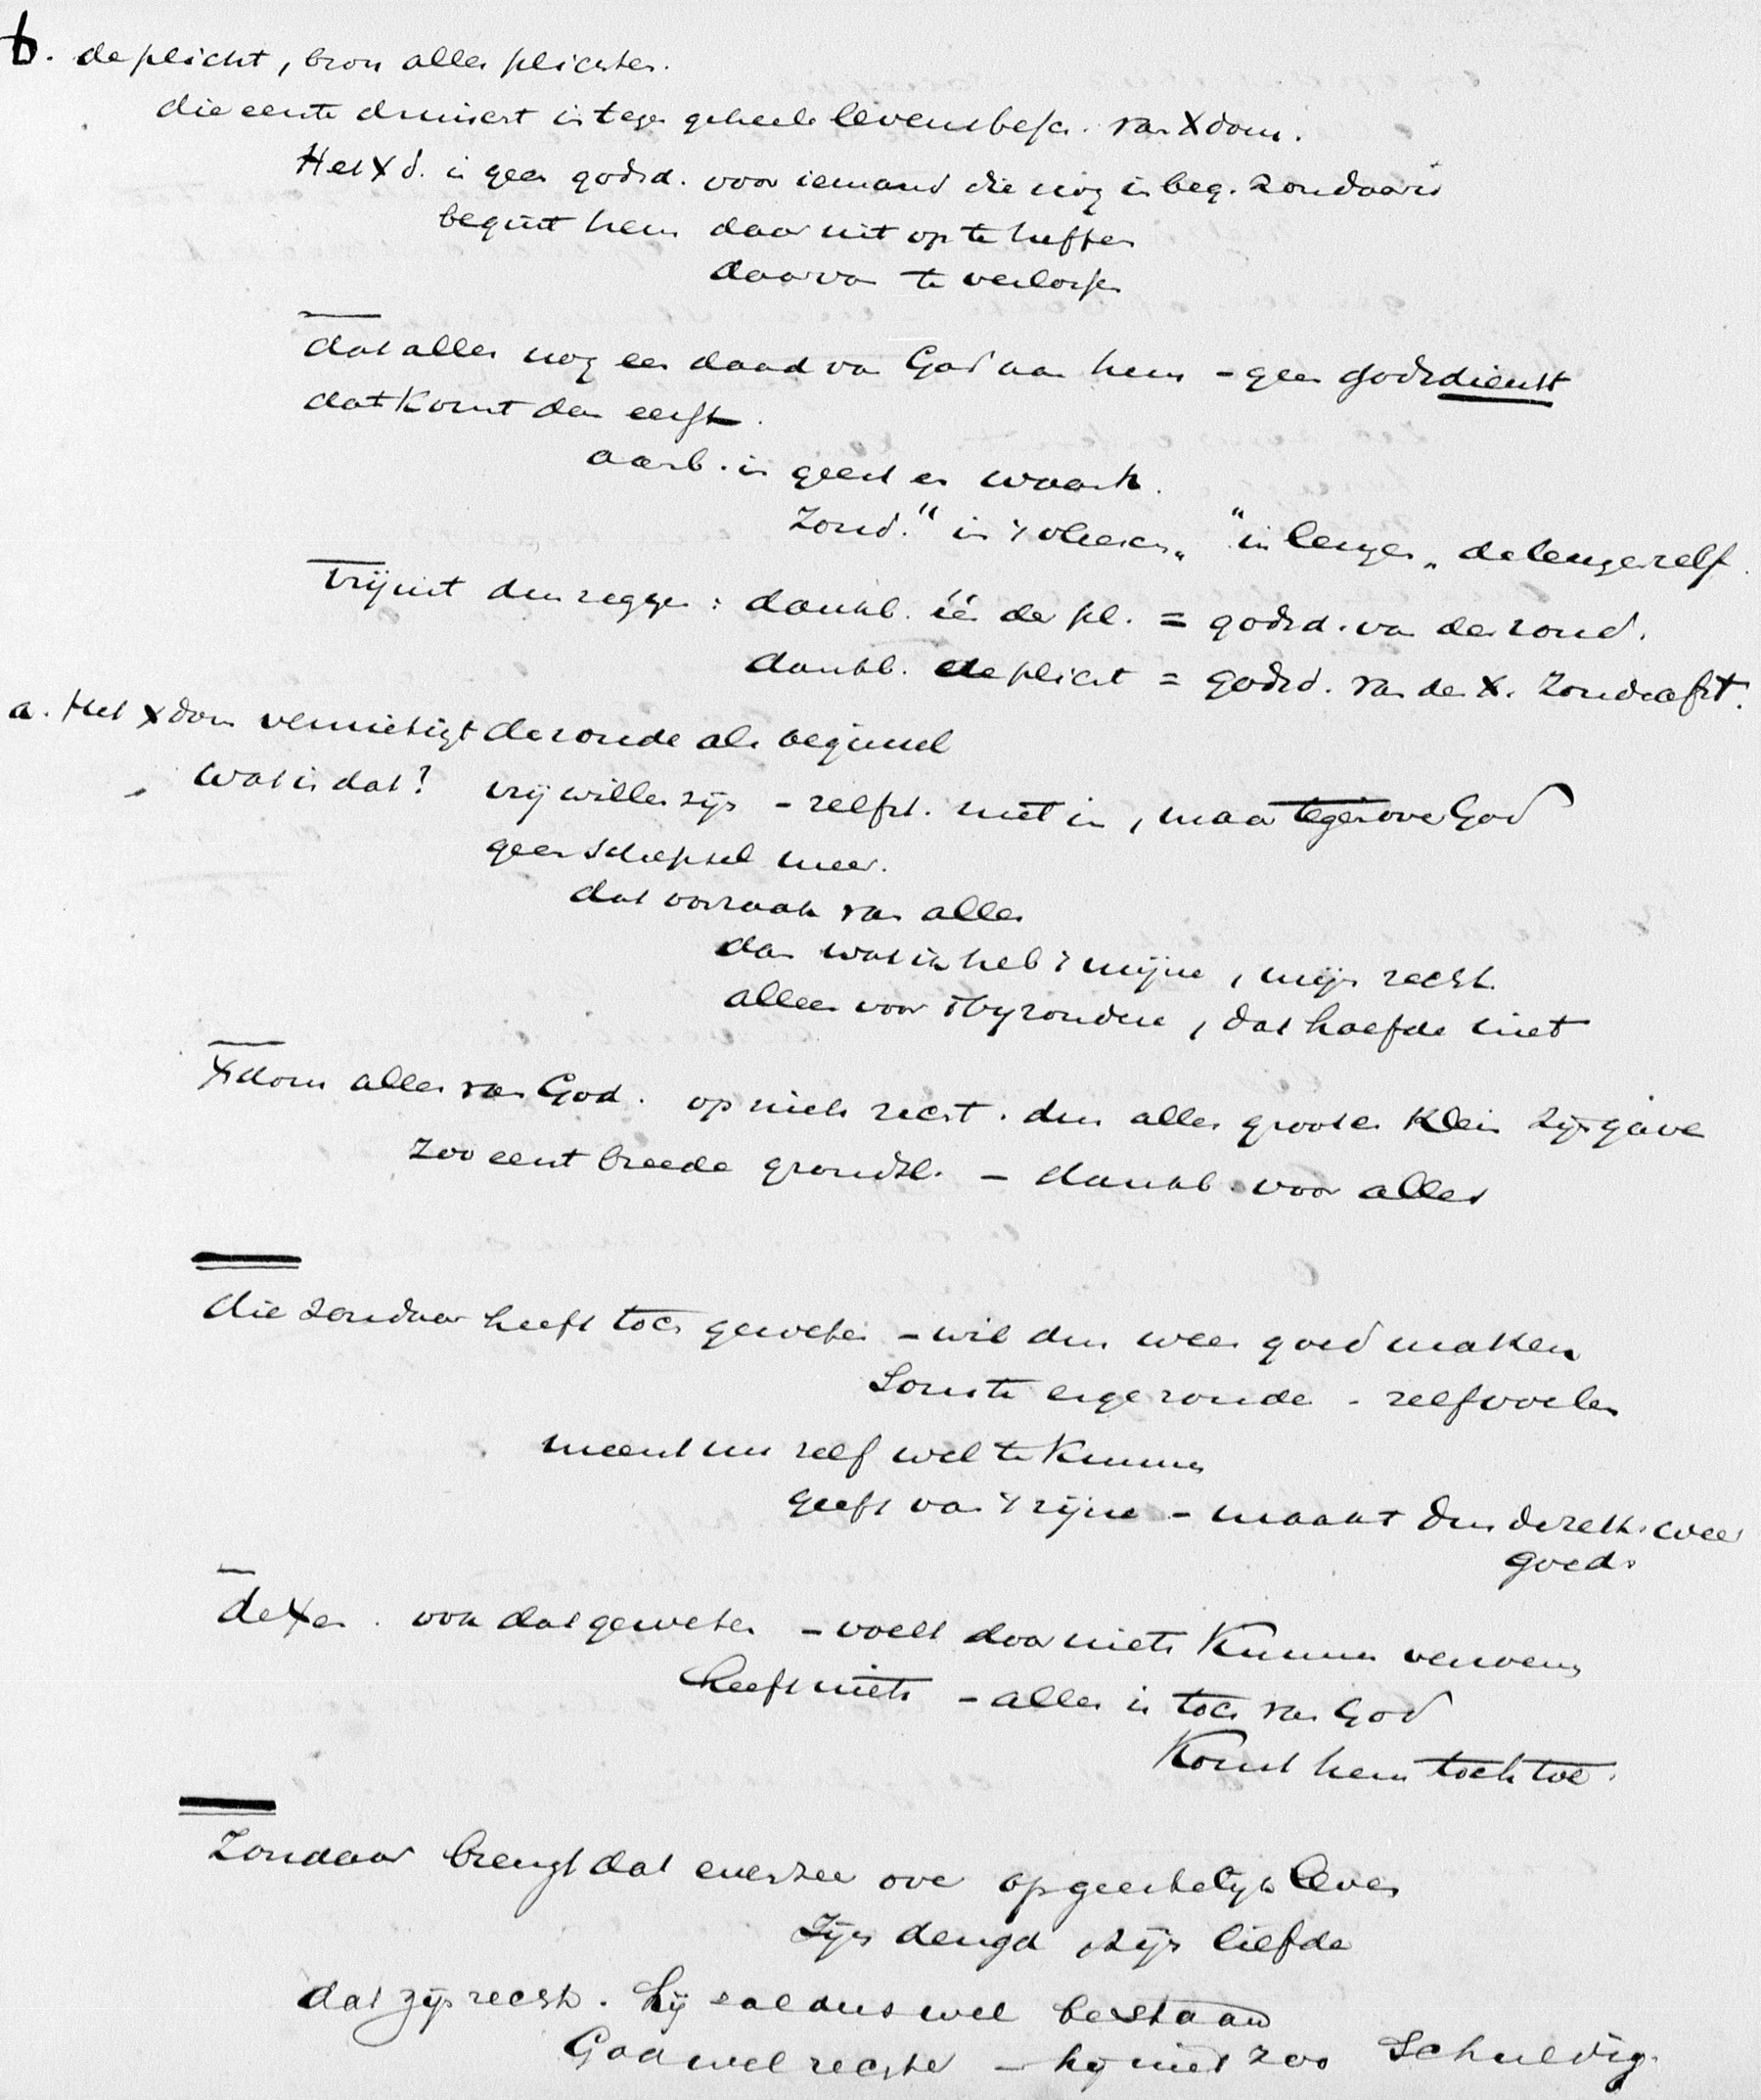 b. de plicht, bron aller plichten.
die eerste druischt in tegen geheele levensbesch. van Xdom.
Het Xd. is geen godsd. voor iemand die nog in beg. zondaar is
begint hem daar uit op te heffen
daarvan te verlossen
dat alles nog een daad van God aan hem - geen godsdienst
dat komt dan eerst.
aanb. in geest en waarh.
Zond. "in 't vleesch" "in leugen" de leugen zelf.
Vrij uit dus zeggen : dankb. één der pl. = godsd. van den zond.
dankb. de plicht = godsd. van den X. Zond. afst.
a. Het Xdom vernietigt de zonde als beginsel
Wat is dat? vrij willen zijn - zelfst. niet in, maar tegenover God
geen schepsel meer.
dat oorzaak van alles
dan wat ik heb 't mijne, mijn recht.
alleen voor 't byzondere, dat hoefde niet
Xdom alles van God. op niets recht. dus alles groot en klein zijn gave
Zoo eerst breede grondsl. - dankb. voor alles
die zondaar heeft toch geweten - wil dus weer goed maken
Soms te erge zonde - zelf voelen
meent nu zelf wel te kunnen
geeft van 't zijne - maakt dus de rek. weer
goed.
de Xen. ook dat geweten - voelt door niets kunnen verwerven
heeft niets - alles is toch van God
Komt hem toch toe.
Zondaar brengt dat evenzee over op geestelijk leven
Zijn deugd, zijn liefde
dat zijn recht. hij zal dus wel bestaan
God wel rechter - hij niet zoo schuldig.